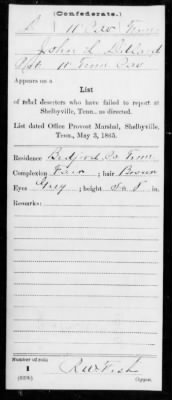 (Confederate.)
11 Cav Tenn
John L
11 Tenn Cav
Appears on a
List
of rebel deserters who have failed to report at
Shelbyville, Tenn., as directed.
List dated Office Provost Marshal, Shelbyville,
Tenn., May 3, 1865.
Residence Bedford Co Tenn
Complexion Fair; hair Brown
Eyes Grey; height 5 ft. 8 in.
Remarks:
Number of roll:
1
Copyist.